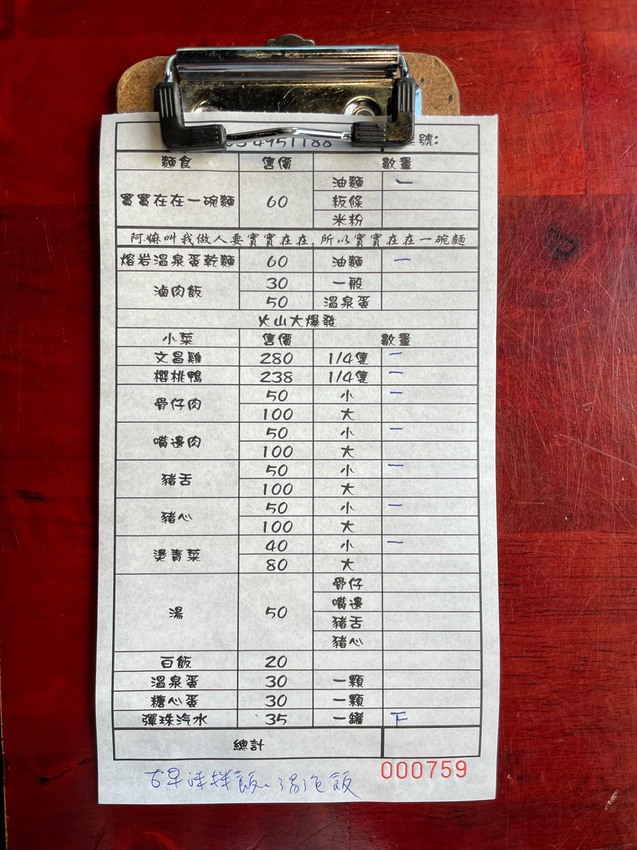 4951188 號:
麵食 售價 數量
實實在在一碗麵 60 油麵 一
粄條
米粉
阿嬤叫我做人要實實在在,所以實實在在一碗麵
熔岩溫泉蛋乾麵 60 油麵 一
滷肉飯 30 一般
50 溫泉蛋
火山大爆發
小菜 售價 數量
文昌雞 280 1/4隻 一
櫻桃鴨 238 1/4隻 一
骨仔肉 50 小 一
100 大
嘴邊肉 50 小 一
100 大
豬舌 50 小 一
100 大
豬心 50 小 一
100 大
燙青菜 40 小 一
80 大
湯 50 骨仔
嘴邊
豬舌
豬心
白飯 20
溫泉蛋 30 一顆
糖心蛋 30 一顆
彈珠汽水 35 一罐 下
總計
000759
古早味拌飯、湯泡飯